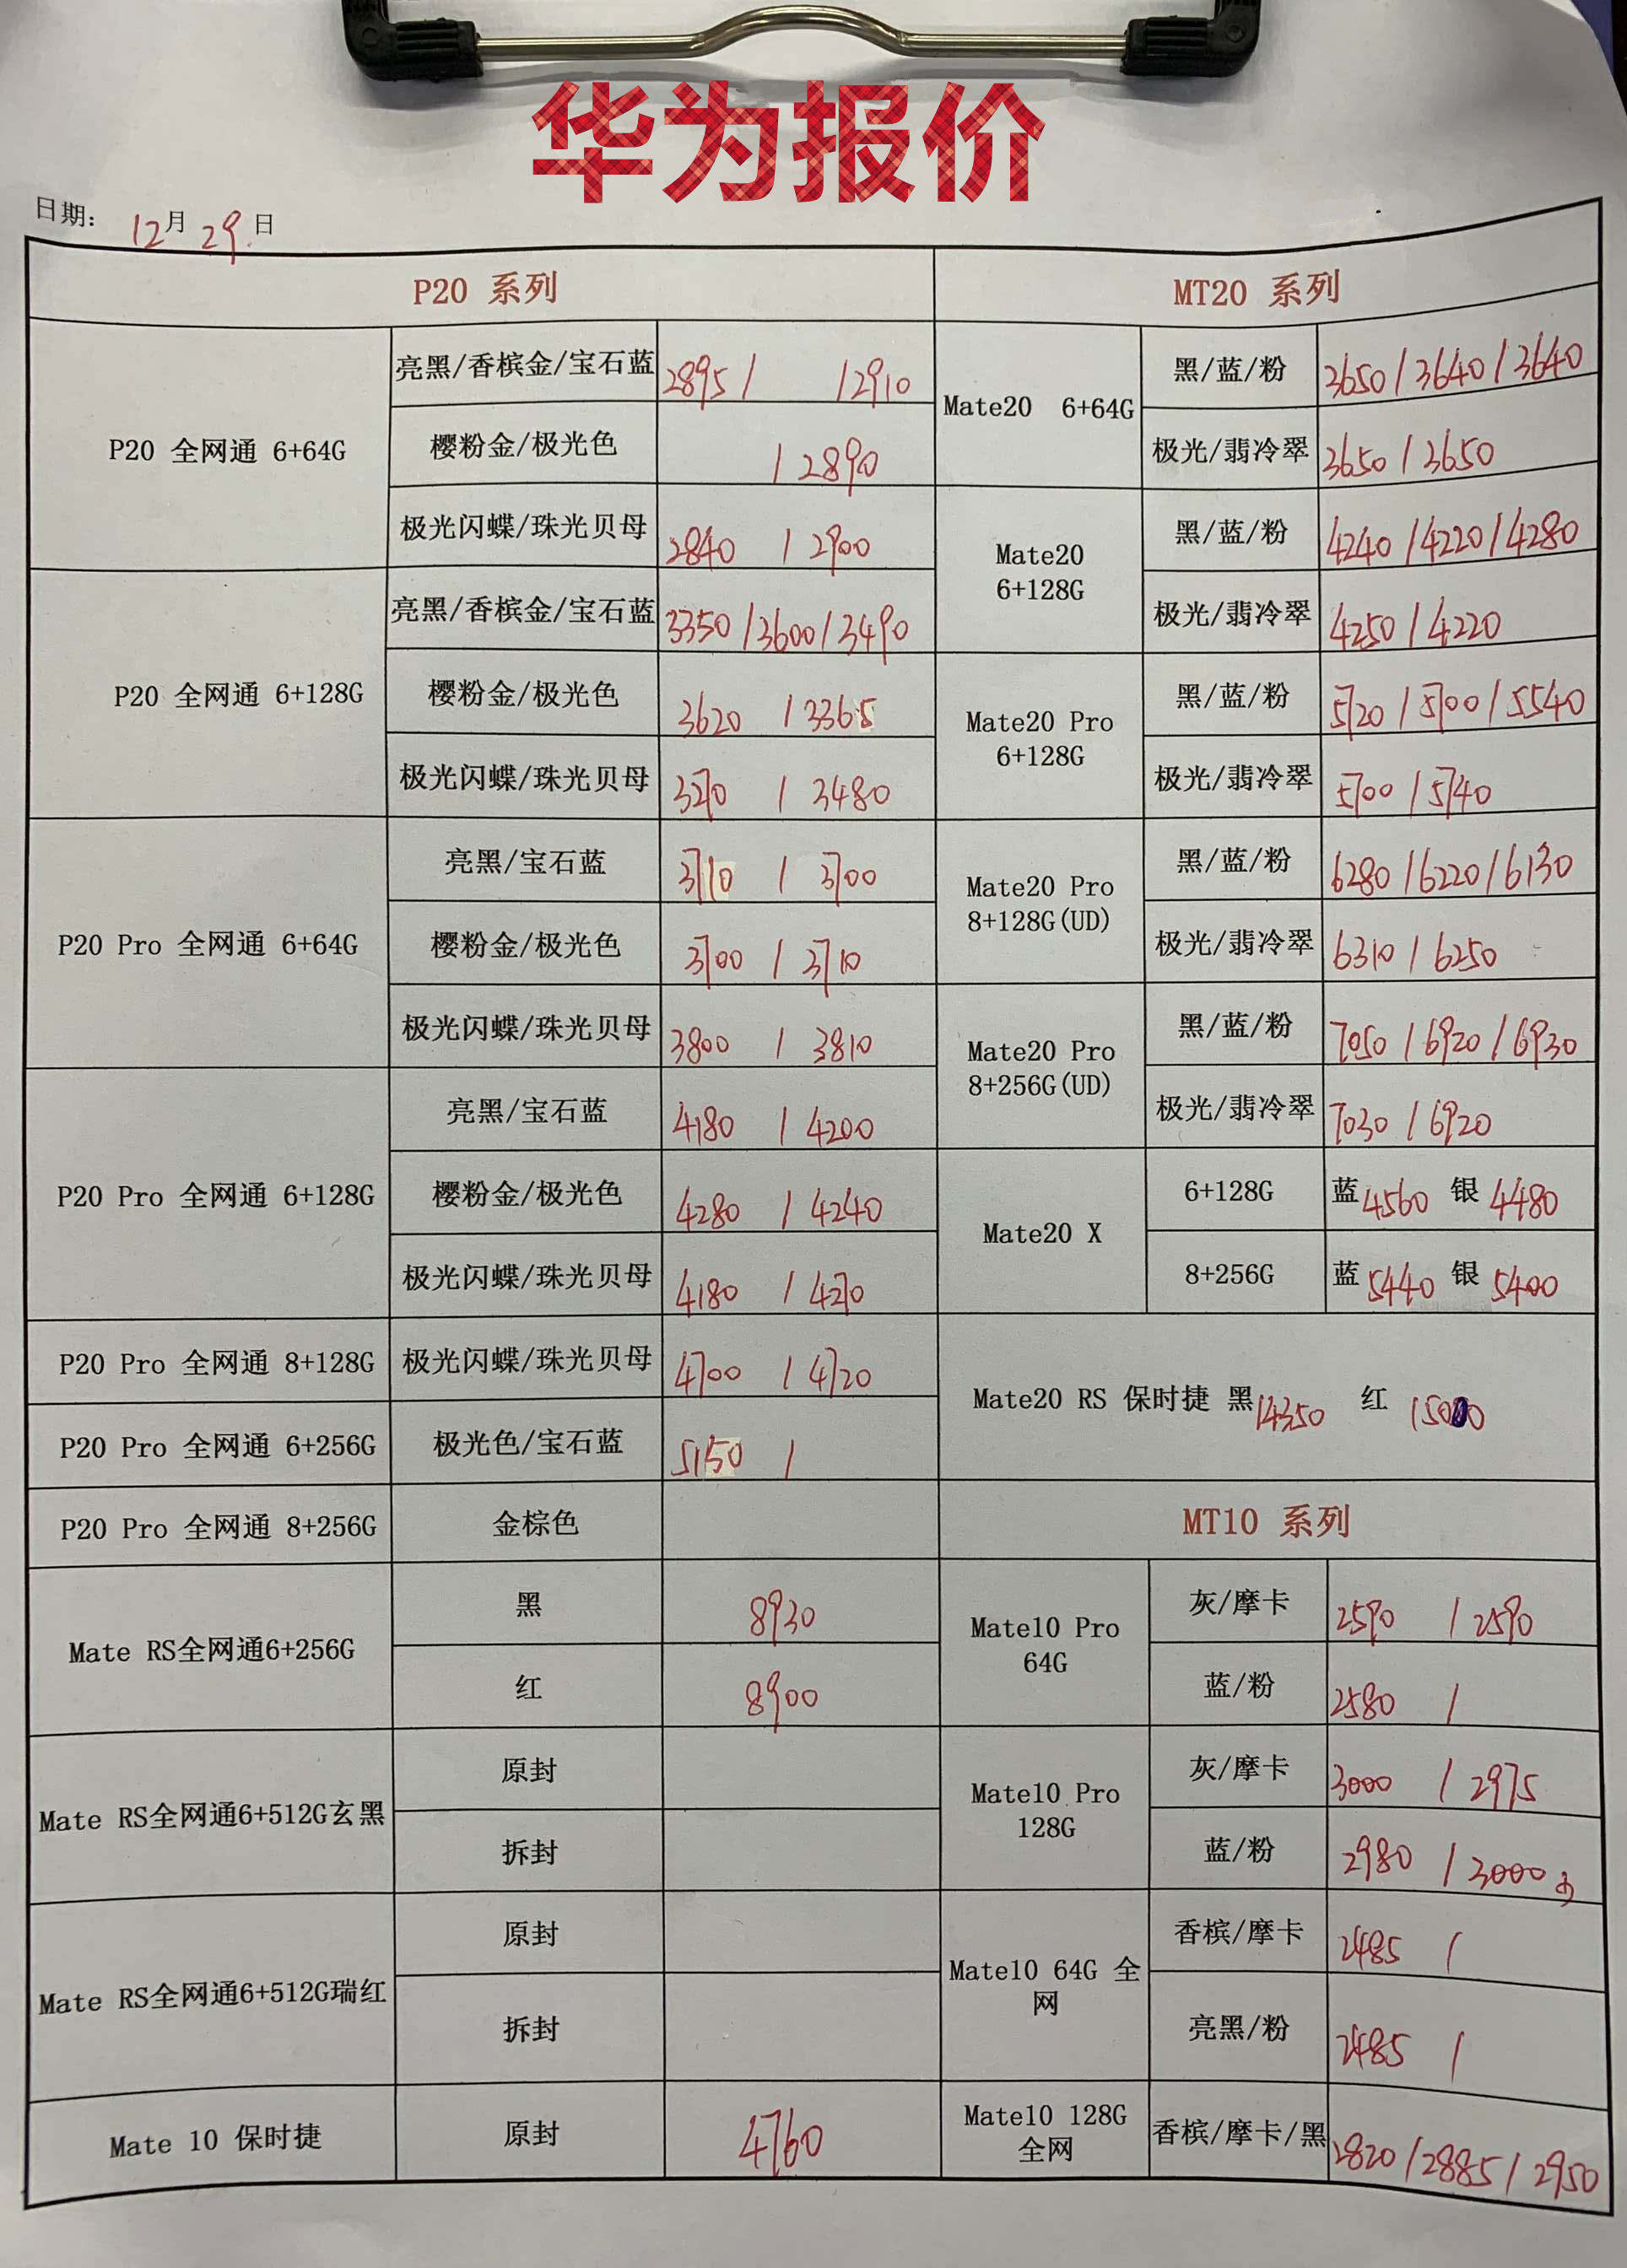 华为报价
日期: 12月29日
P20 系列
P20 全网通 6+64G
亮黑/香槟金/宝石蓝 2895/ /2910
樱粉金/极光色 /2890
极光闪蝶/珠光贝母 2840 /2900
P20 全网通 6+128G
亮黑/香槟金/宝石蓝 3350/3600/3490
樱粉金/极光色 3620 /3365
极光闪蝶/珠光贝母 3270 /3480
P20 Pro 全网通 6+64G
亮黑/宝石蓝 3710 /3700
樱粉金/极光色 3700 /3710
极光闪蝶/珠光贝母 3800 /3810
P20 Pro 全网通 6+128G
亮黑/宝石蓝 4180 /4200
樱粉金/极光色 4280 /4240
极光闪蝶/珠光贝母 4180 /4270
P20 Pro 全网通 8+128G 极光闪蝶/珠光贝母 4700 /4720
P20 Pro 全网通 6+256G 极光色/宝石蓝 5150 /
P20 Pro 全网通 8+256G 金棕色
Mate RS全网通6+256G
黑 8930
红 8900
Mate RS全网通6+512G玄黑
原封
拆封
Mate RS全网通6+512G瑞红
原封
拆封
Mate 10 保时捷 原封 4760
MT20 系列
Mate20 6+64G
黑/蓝/粉 3650/3640/3640
极光/翡冷翠 3650/3650
Mate20
6+128G
黑/蓝/粉 4240/4220/4280
极光/翡冷翠 4250/4220
Mate20 Pro
6+128G
黑/蓝/粉 5720/5700/5540
极光/翡冷翠 5700/5740
Mate20 Pro
8+128G(UD)
黑/蓝/粉 6280/6220/6130
极光/翡冷翠 6310/6250
Mate20 Pro
8+256G(UD)
黑/蓝/粉 7050/6920/6930
极光/翡冷翠 7030/6920
Mate20 X
6+128G 蓝4560 银4480
8+256G 蓝5440 银5400
Mate20 RS 保时捷 黑14350 红 15000
MT10 系列
Mate10 Pro
64G
灰/摩卡 2590 /2590
蓝/粉 2580 /
Mate10 Pro
128G
灰/摩卡 3000 /2975
蓝/粉 2980 /3000
Mate10 64G 全
网
香槟/摩卡 2485 /
亮黑/粉 2485 /
Mate10 128G
全网
香槟/摩卡/黑 2820/2885/2950